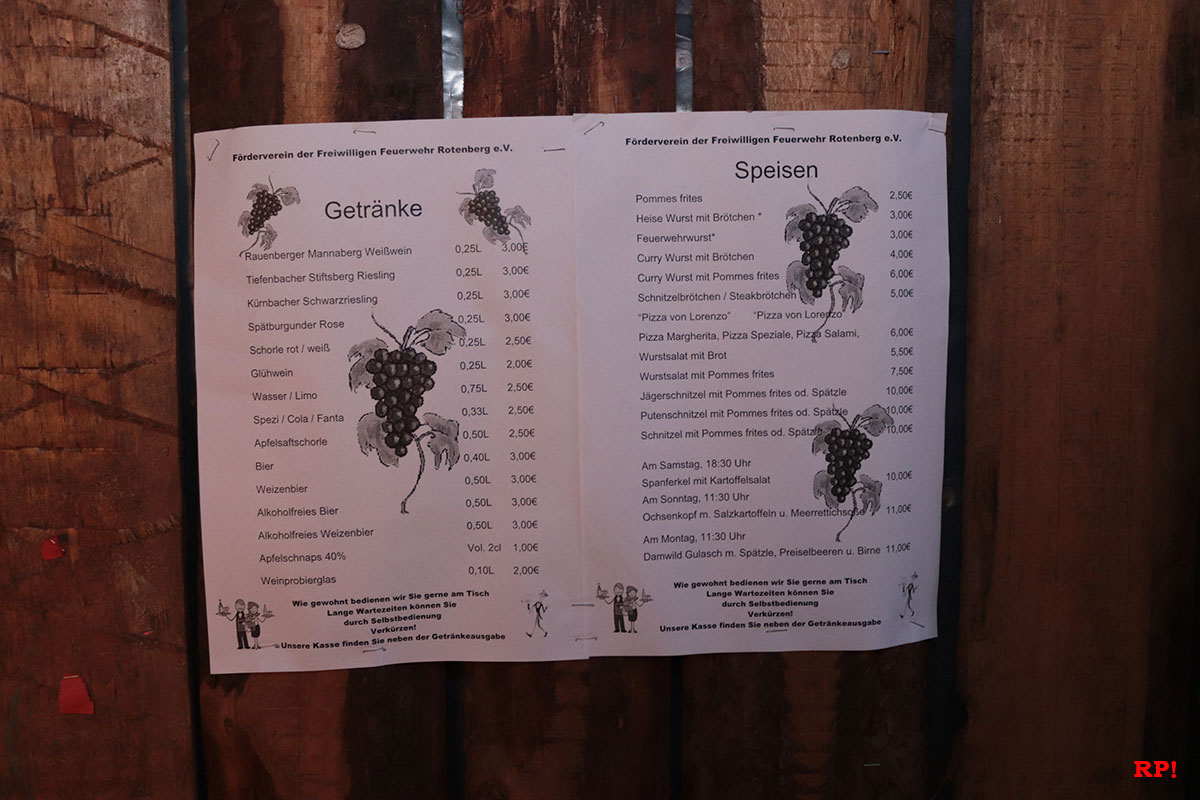 Förderverein der Freiwilligen Feuerwehr Rotenberg e.V.
Getränke
Rauenberger Mannaberg Weißwein 0,25L 3,00€
Tiefenbacher Stiftsberg Riesling 0,25L 3,00€
Kürnbacher Schwarzriesling 0,25L 3,00€
Spätburgunder Rose 0,25L 3,00€
Schorle rot / weiß 0,25L 2,50€
Glühwein 0,25L 2,00€
Wasser / Limo 0,75L 2,50€
Spezi / Cola / Fanta 0,33L 2,50€
Apfelsaftschorle 0,50L 2,50€
Bier 0,40L 3,00€
Weizenbier 0,50L 3,00€
Alkoholfreies Bier 0,50L 3,00€
Alkoholfreies Weizenbier 0,50L 3,00€
Apfelschnaps 40% Vol. 2cl 1,00€
Weinprobierglas 0,10L 2,00€
Wie gewohnt bedienen wir Sie gerne am Tisch
Lange Wartezeiten können Sie
durch Selbstbedienung
Verkürzen!
Unsere Kasse finden Sie neben der Getränkeausgabe
Förderverein der Freiwilligen Feuerwehr Rotenberg e.V.
Speisen
Pommes frites 2,50€
Heise Wurst mit Brötchen * 3,00€
Feuerwehrwurst* 3,00€
Curry Wurst mit Brötchen 4,00€
Curry Wurst mit Pommes frites 6,00€
Schnitzelbrötchen / Steakbrötchen 5,00€
"Pizza von Lorenzo" "Pizza von Lorenzo"
Pizza Margherita, Pizza Speziale, Pizza Salami, 6,00€
Wurstsalat mit Brot 5,50€
Wurstsalat mit Pommes frites 7,50€
Jägerschnitzel mit Pommes frites od. Spätzle 10,00€
Putenschnitzel mit Pommes frites od. Spätzle 10,00€
Schnitzel mit Pommes frites od. Spätzle 10,00€
Am Samstag, 18:30 Uhr
Spanferkel mit Kartoffelsalat 10,00€
Am Sonntag, 11:30 Uhr
Ochsenkopf m. Salzkartoffeln u. Meerrettichsoße 11,00€
Am Montag, 11:30 Uhr
Damwild Gulasch m. Spätzle, Preiselbeeren u. Birne 11,00€
Wie gewohnt bedienen wir Sie gerne am Tisch
Lange Wartezeiten können Sie
durch Selbstbedienung
Verkürzen!
Unsere Kasse finden Sie neben der Getränkeausgabe
RP!